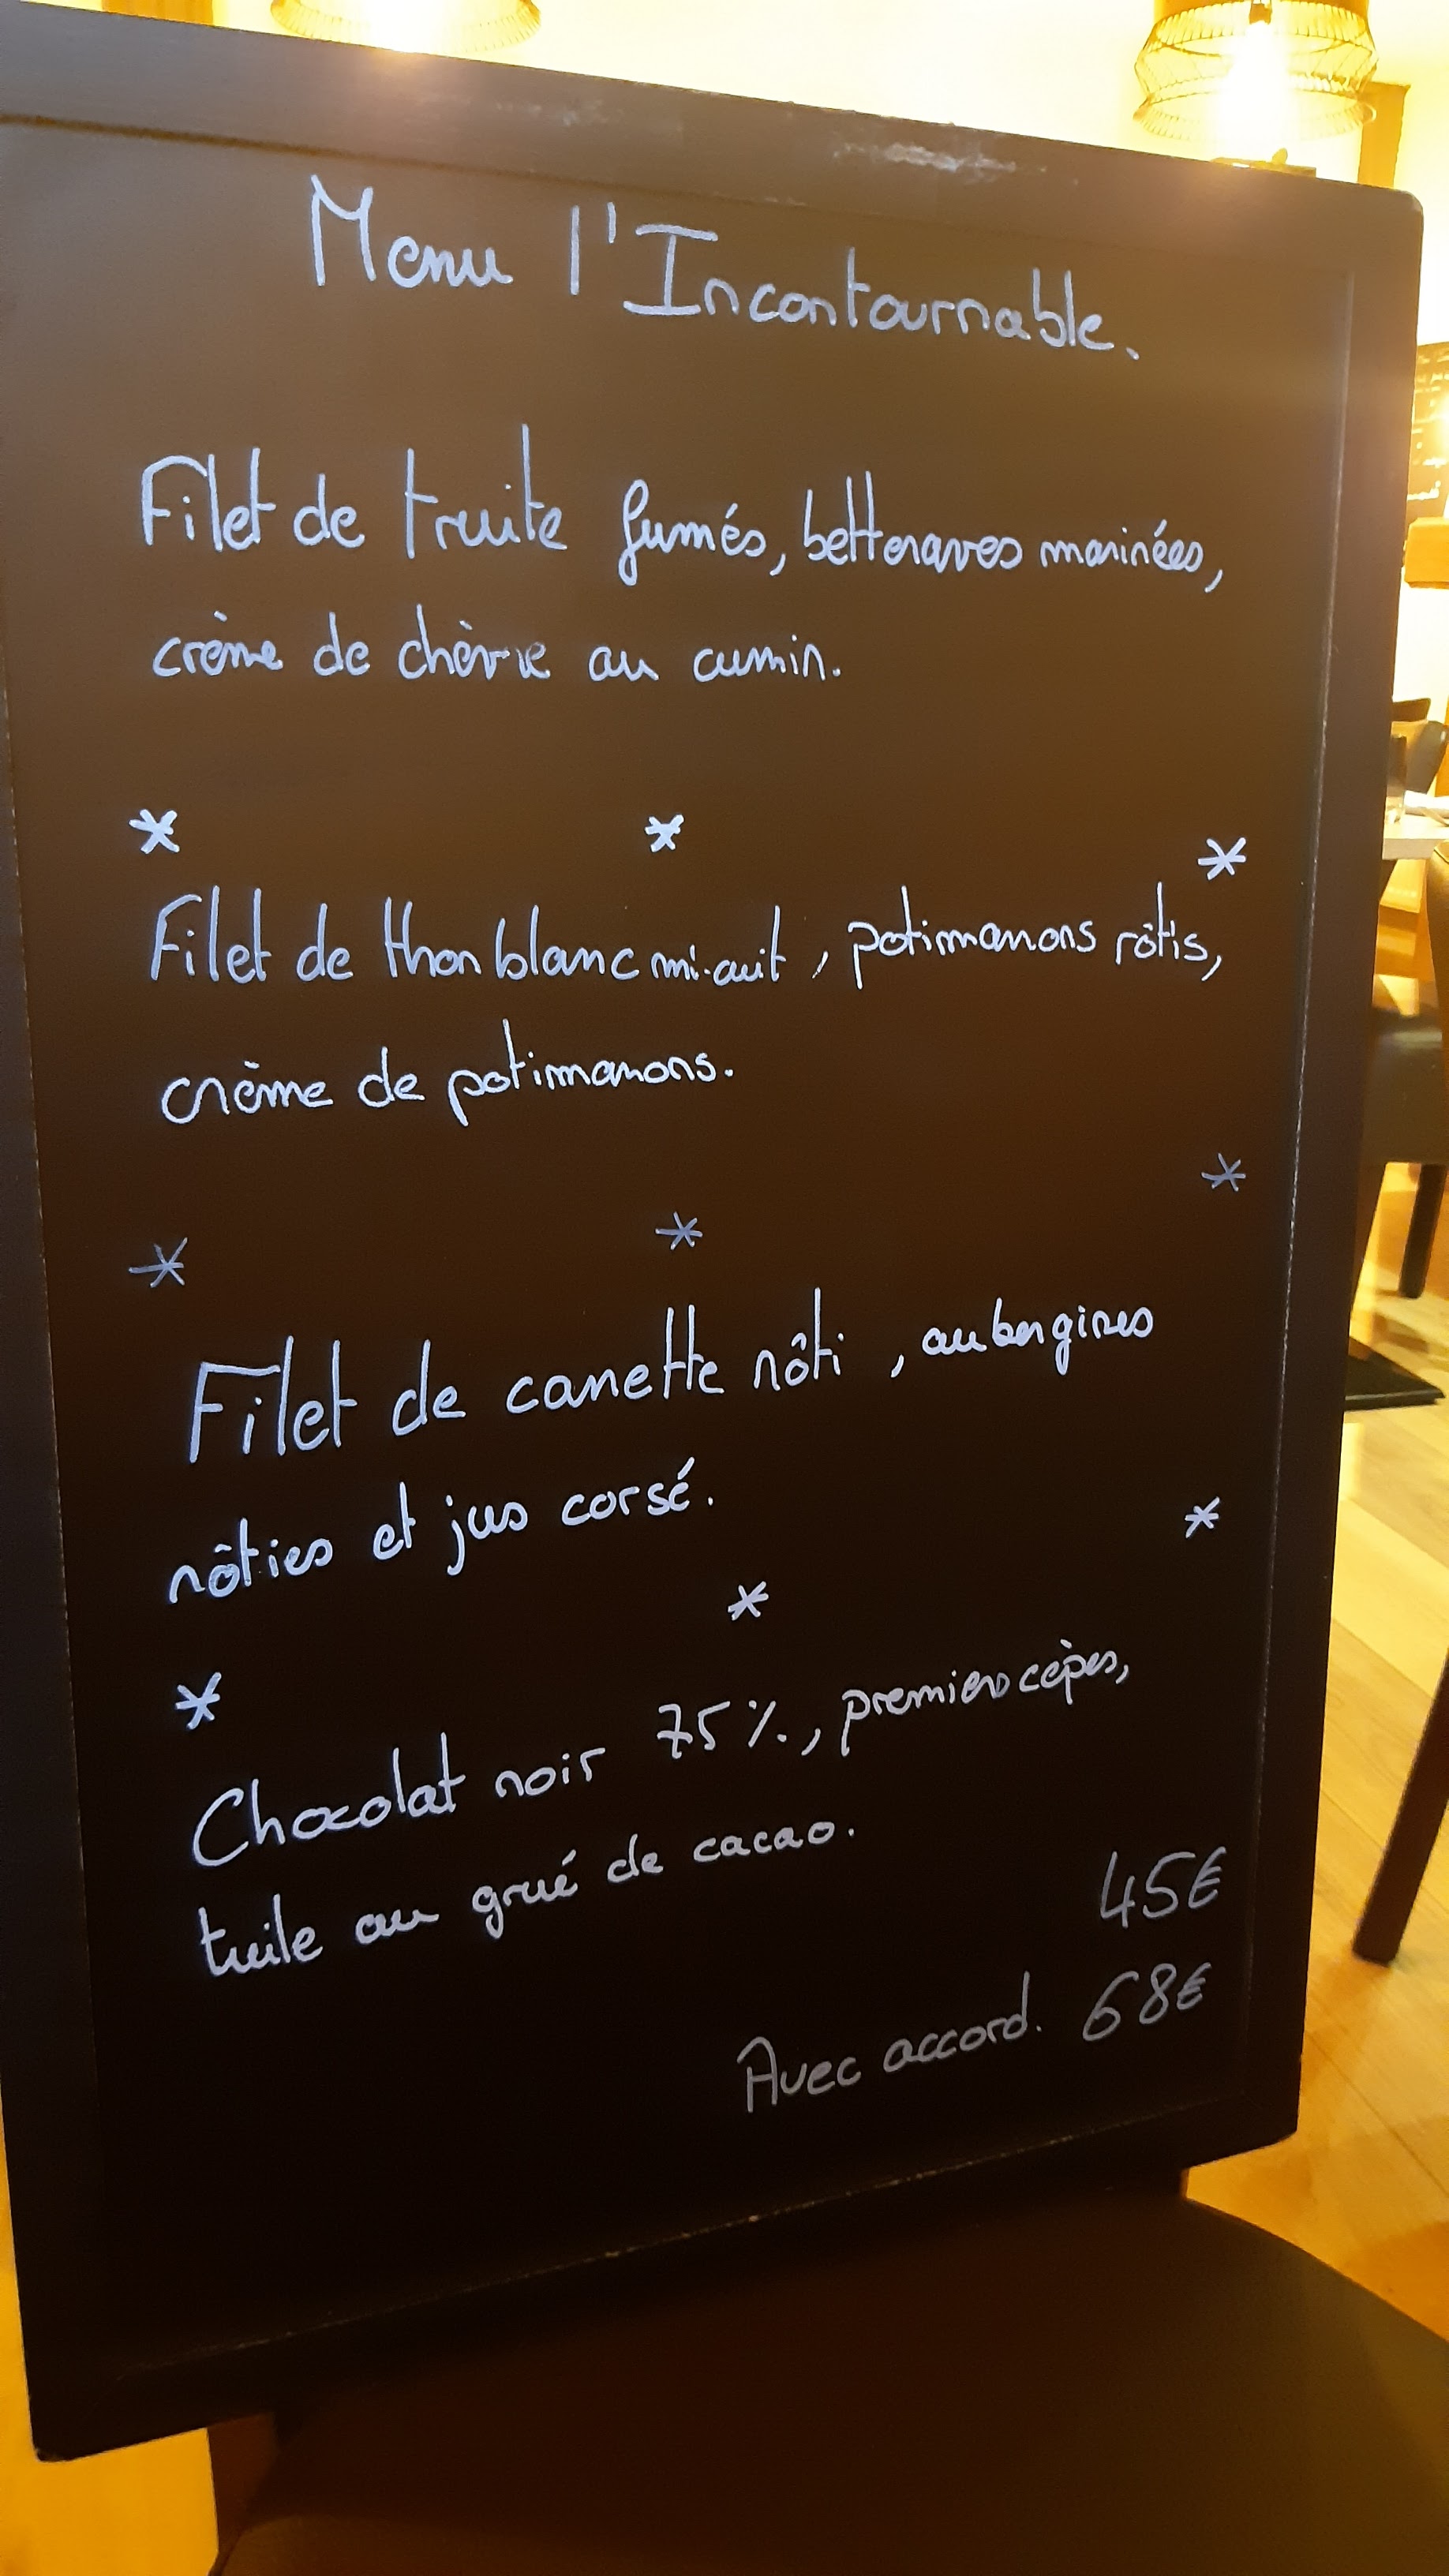 Menu l'Incontournable.
Filet de truite fumés, betteraves marinées,
crème de chèvre au cumin.
* * *
Filet de thon blanc mi-cuit, potimarrons rôtis,
crème de potimarrons.
* * *
Filet de canette rôti, aubergines
rôties et jus corsé.
* * *
Chocolat noir 75%, premiers cèpes,
tuile au grué de cacao.
45€
Avec accord. 68€